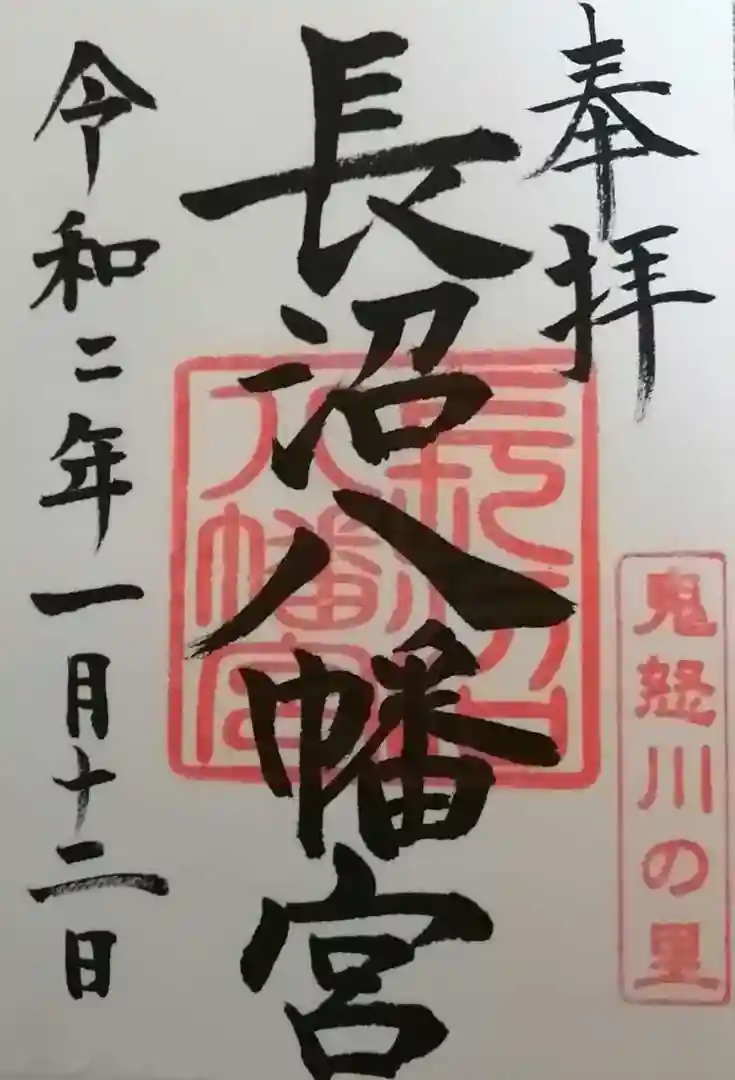 奉拝
鬼怒川の里
長沼八幡宮
長沼
八幡宮
令和二年一月十二日